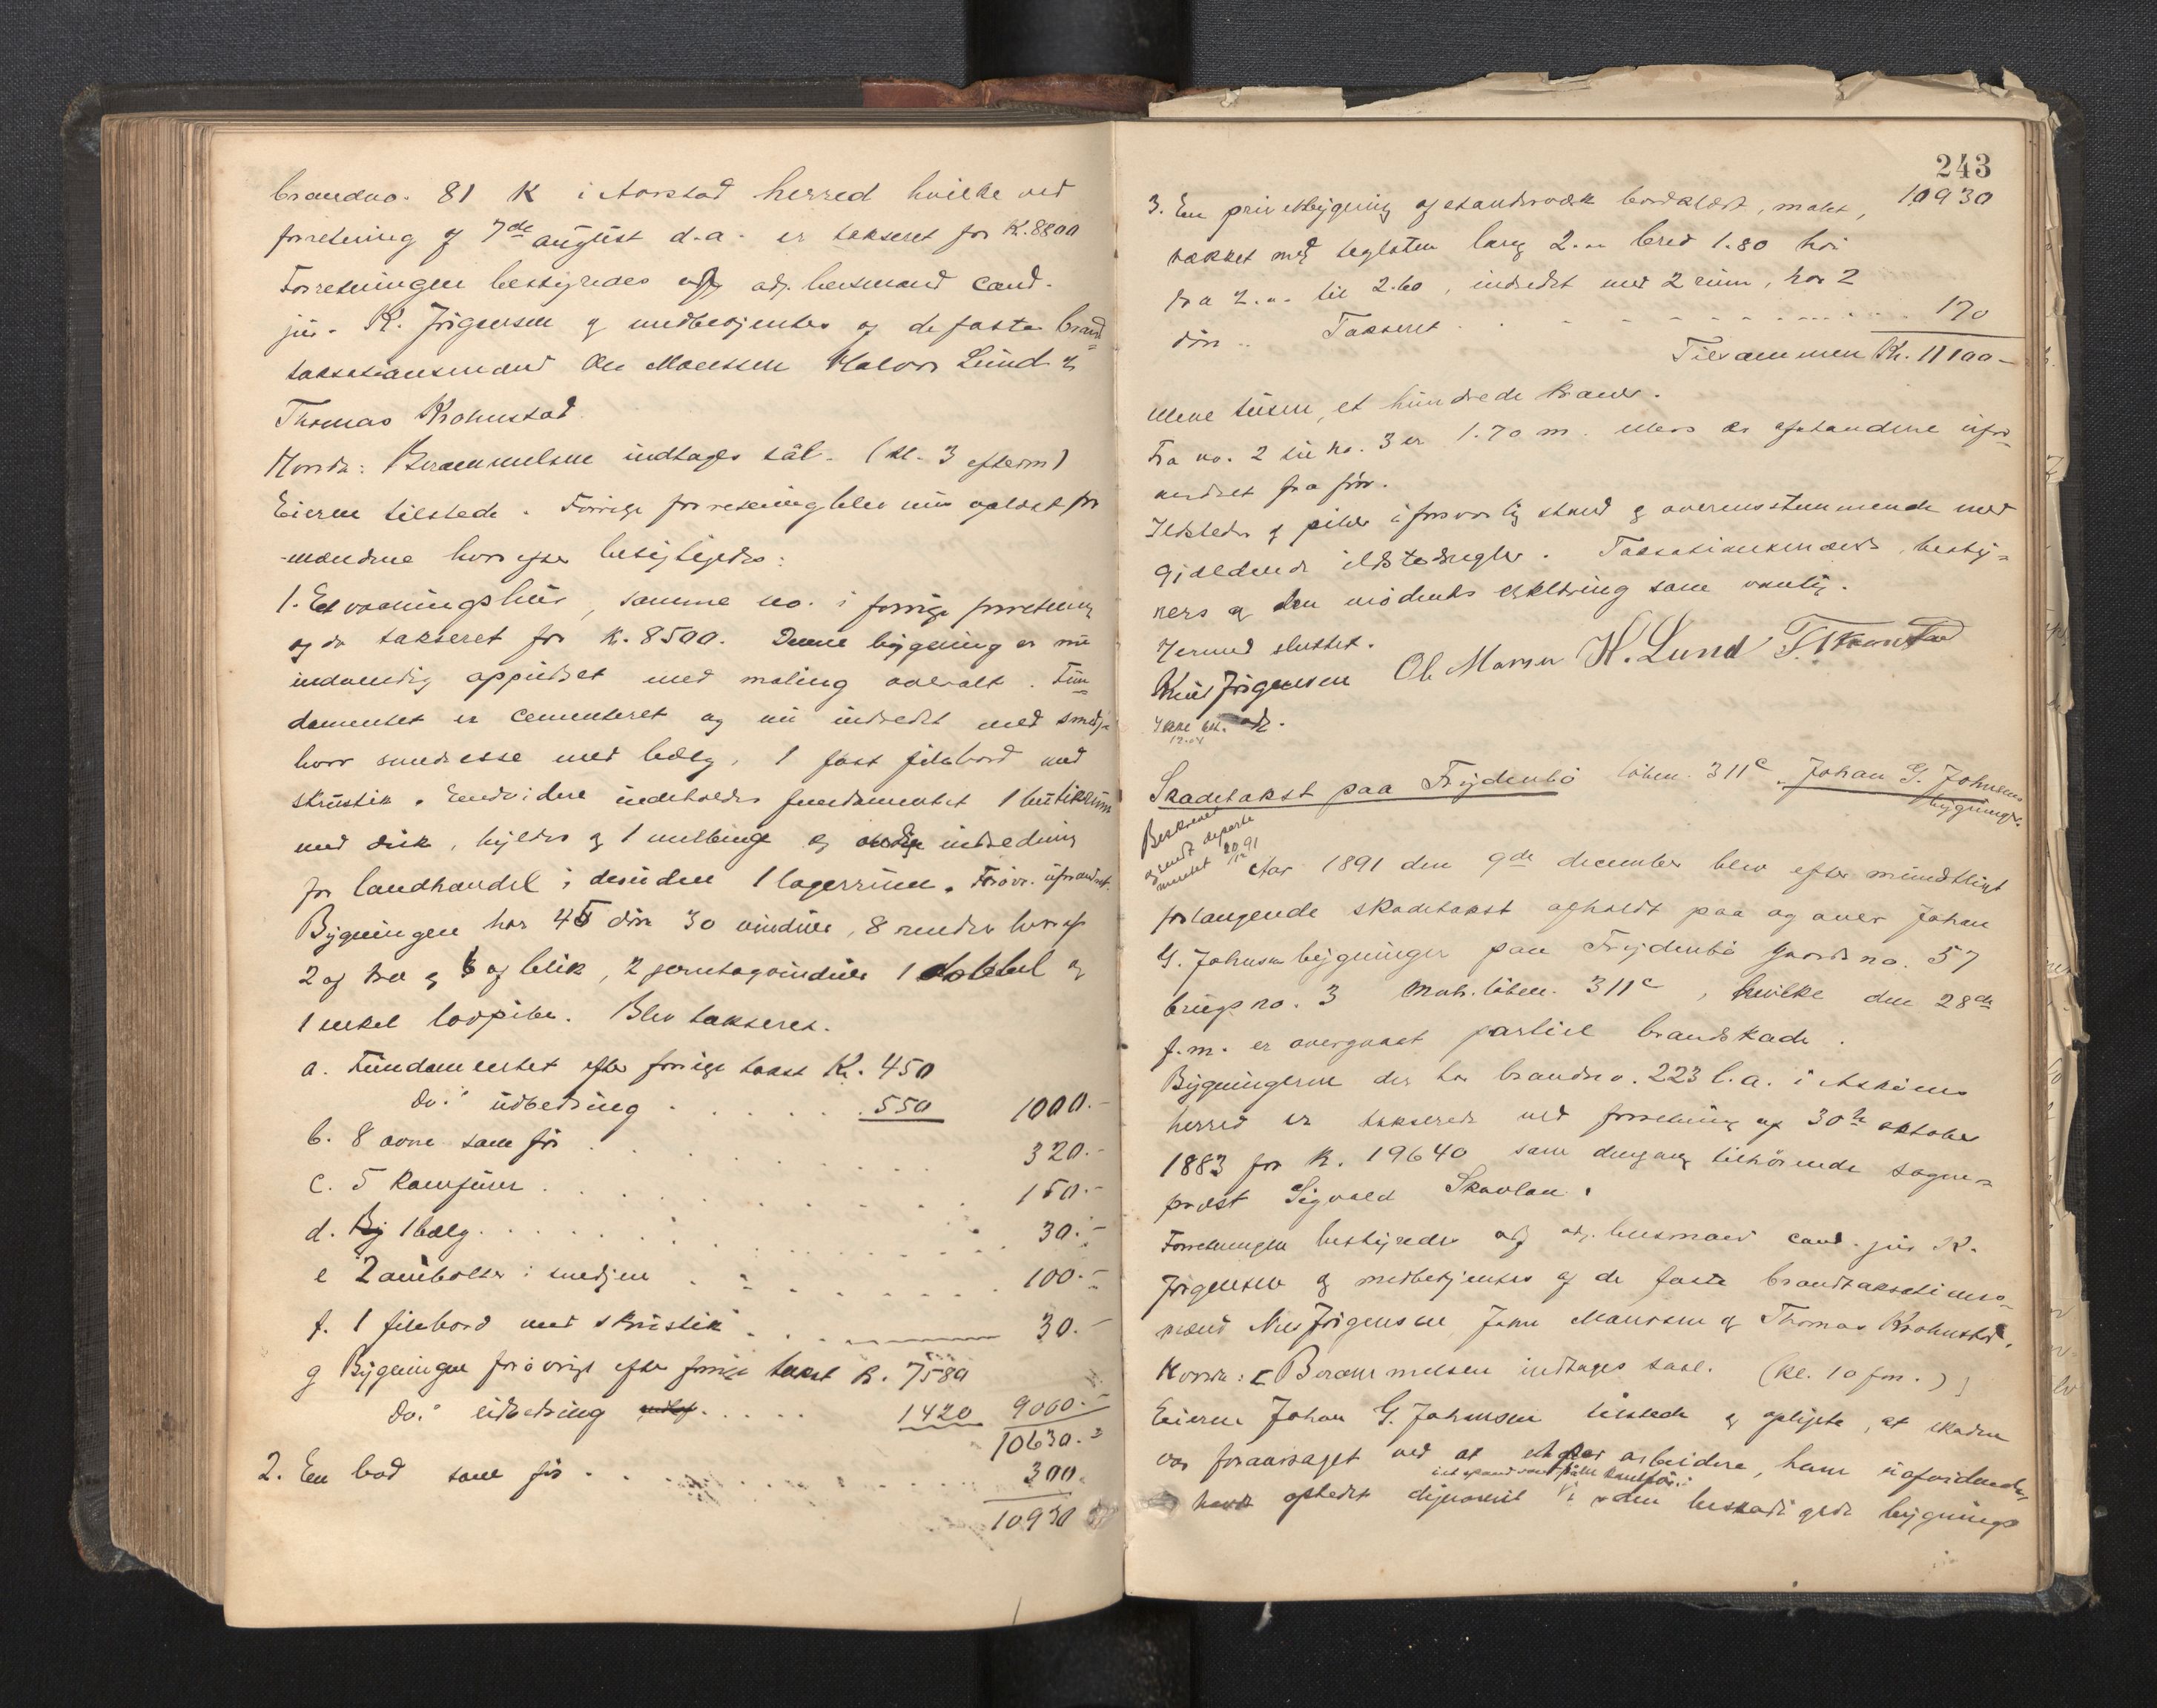 brandno. 81 K i Aarstad herred hvilke ved
forretning af 7de august d.a. er takseret for K. 8800
Forretningen bestyredes af adj. lensmand cand.
jur. K. Jörgensen og medbetjentes af de faste brand=
taksationsmænd Ole Monssen Halvor Lund og
Thomas Krohnstad.
Hvorda: Berammelsen indtages sål. (kl. 3 efterm)
Eieren tilstede. Forrige forretning blev nu oplæst for
mændene hvorefter besigtigedes:
1. Et vaaningshus, samme no. i forrige forretning
og da takseret for K. 8500. Denne bygning er nu
indvendig oppudset med maling overalt. Fun=
damentet er cementeret og nu indredet med smedje
hvor smedesse med bælg, 1 fast filebord med
skrustik. Endvidere indeholder fundamentet 1 butikrum
med disk, hylder og 1 melbinge og indredning
for landhandel; desuden 1 lagerrum. Forövr. uforandret.
Bygningen har 45 döre 30 vinduer, 8 render hvoraf
2 af træ og 6 af blik, 2 jerntagvinduer 1 dobbel og
1 enkel lodpibe. Blev takseret.
a. Fundamentet efter forrige takst K. 450
do.: udbedring . . . . . 550 1000.-
b. 8 ovne som för . . . 320.-
c. 5 komfurer . . . 150.-
d. By 1 bælg . . . 30.-
e 2 ambolter i smedjen . . . 100.-
f. 1 filebord med skrustik . . . 30.-
g Bygningen forövrigt efter forrige takst K. 7580
do.: udbedring . . . . 1420 9000.-
10630.-
2. En bod som för . . . 300.
10930
243
3. En privetbygning af standerværk bordklædt, malet, 10930
tækket med teglsten lang 2.00 bred 1.80 höi
fra 2.00 til 2.60, indredet med 2 rum, har 2
döre .. Takseret . . . 170
Tilsammen Kr. 11100-
elleve tusen, et hundrede kroner.
Fra no. 2 til no. 3 er 1.70 m. ellers er afstandene ufor=
andret fra för.
Ildsteder og piber i forsvarlig stand og overensstemmende med
gjældende ildstedsregler. Taksationsmænds, besty=
rers og den mödendes erklæring som vanlig.
Hermed sluttet.
Knut Jörgensen Ole Monsen H. Lund T. Kronstad
Skadetakst paa Frydenbö löben. 311c, Johan G. Johnsens
bygninger.
Beskrevet
og sendt departe
mentet 20/12 91
Aar 1891 den 9de december blev efter mundtligt
forlangende skadetakst afholdt paa og over Johan
G. Johnsens bygninger paa Frydenbö gaards no. 57
brugs no. 3 Matr. löben. 311c, hvilke den 28de
f.m. er overgaaet partiel brandskade.
Bygningerne der har brandno. 223 l.a. i Asköens
herred er takserede ved forretning af 30te oktober
1883 for K. 19640 som dengang tilhörende sogne=
præst Sigvald Skavlan.
Forretningen bestyredes af adj. lensmand cand. jur K.
Jörgensen og medbetjentes af de faste brandtaksations=
mænd Nils Jörgensen, Johan Monssen og Thomas Krohnstad.
Hvorda: [Berammelsen indtages saal. (kl. 10 fm.)]
Eieren Johan G. Johnsen tilstede og oplyste, at skaden
var foraarsaget ved at et par arbeidere, ham uafvidende,
i et spand
havde ophedet dynamit i den beskadigede bygnings